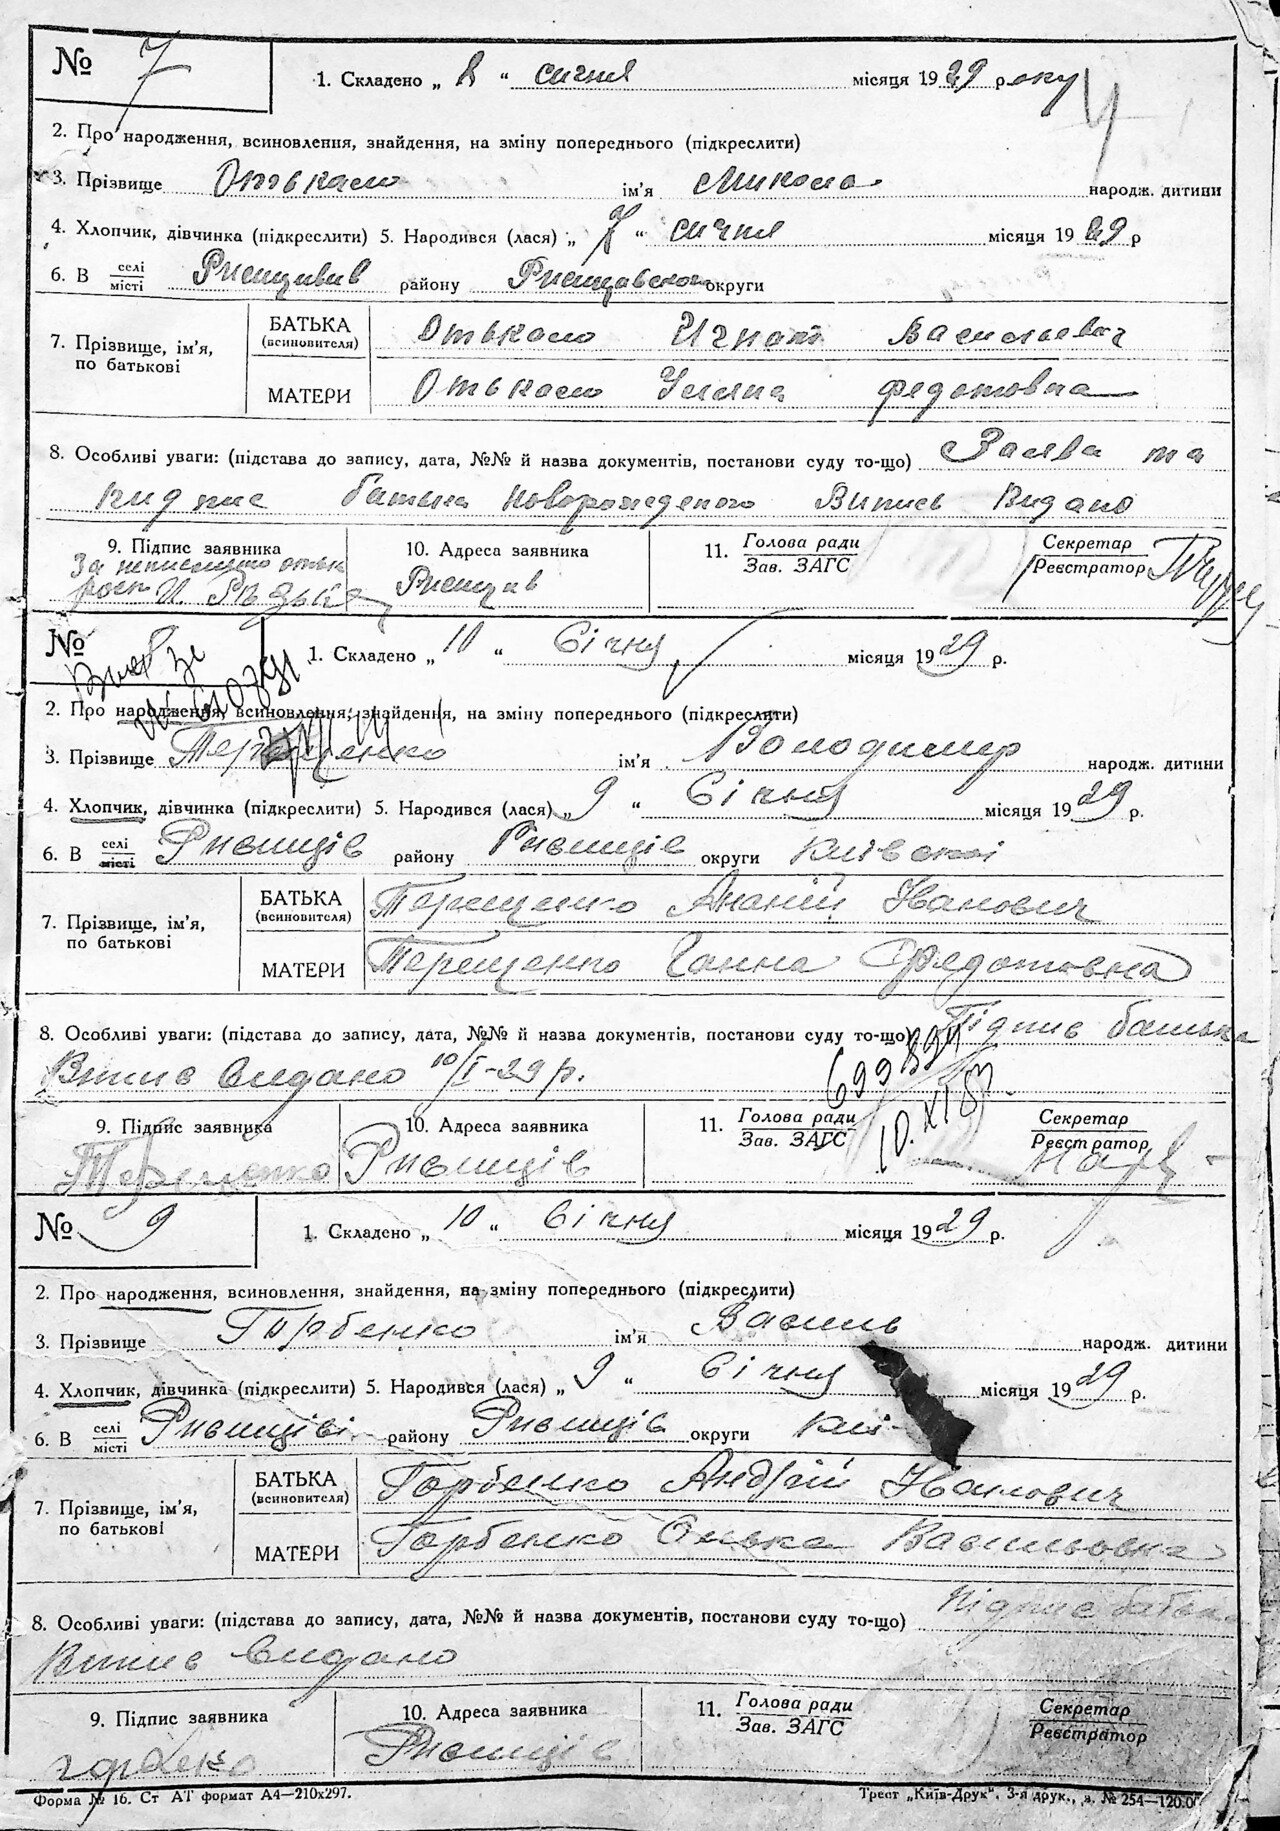 № 7
1. Складено „ 8 “ сичня місяця 1929 року
2. Про народження, всиновлення, знайдення, на зміну попереднього (підкреслити)
3. Прізвище ім'я Микола народж. дитини
4. Хлопчик, дівчинка (підкреслити) 5. Народився (лася) „ 7 “ сичня місяця 1929 р
6. В селі/місті Ржищивив району Ржищавского округи
7. Прізвище, ім'я, по батькові
БАТЬКА (всиновителя) Игнат Васильевич
МАТЕРИ Уляна Федотовна
8. Особливі уваги: (підстава до запису, дата, №№ й назва документів, постанови суду то-що) Заява та
пидпис батька новорожденого Випись Видано
9. Підпис заявника 10. Адреса заявника 11. Голова ради Секретар
Зав. ЗАГС Реєстратор
За неписьмено
росп И. Ржищив
№
1. Складено „ 10 “ Січня місяця 1929 р.
2. Про народження, всиновлення, знайдення, на зміну попереднього (підкреслити)
3. Прізвище Терещенко ім'я Володимир народж. дитини
4. Хлопчик, дівчинка (підкреслити) 5. Народився (лася) „ 9 “ Січня місяця 1929 р.
6. В селі/місті Ржищів району Ржищів округи Київскої
7. Прізвище, ім'я, по батькові
БАТЬКА (всиновителя) Терещенко Ананій Іванович
МАТЕРИ Терещенко Ганна Федотовна
8. Особливі уваги: (підстава до запису, дата, №№ й назва документів, постанови суду то-що) Підпис батька
Випис видано 10/I-29 р.
699894
10.XI 83
9. Підпис заявника 10. Адреса заявника 11. Голова ради Секретар
Зав. ЗАГС Реєстратор
Терещенко Ржищів
№ 9
1. Складено „ 10 “ Січня місяця 1929 р.
2. Про народження, всиновлення, знайдення, на зміну попереднього (підкреслити)
3. Прізвище Горбенко ім'я Василь народж. дитини
4. Хлопчик, дівчинка (підкреслити) 5. Народився (лася) „ 9 “ Січня місяця 1929 р.
6. В селі/місті Ржищіві району Ржищів округи Киї
7. Прізвище, ім'я, по батькові
БАТЬКА (всиновителя) Горбенко Андрій Іванович
МАТЕРИ Горбенко Олька Васильовна
8. Особливі уваги: (підстава до запису, дата, №№ й назва документів, постанови суду то-що) Підпис батька
Випис видано
9. Підпис заявника 10. Адреса заявника 11. Голова ради Секретар
Зав. ЗАГС Реєстратор
горбенко Ржищів
Форма № 16. Ст АТ формат А4—210x297. Трест „Київ-Друк“. 3-я друк., з. № 254—120.00